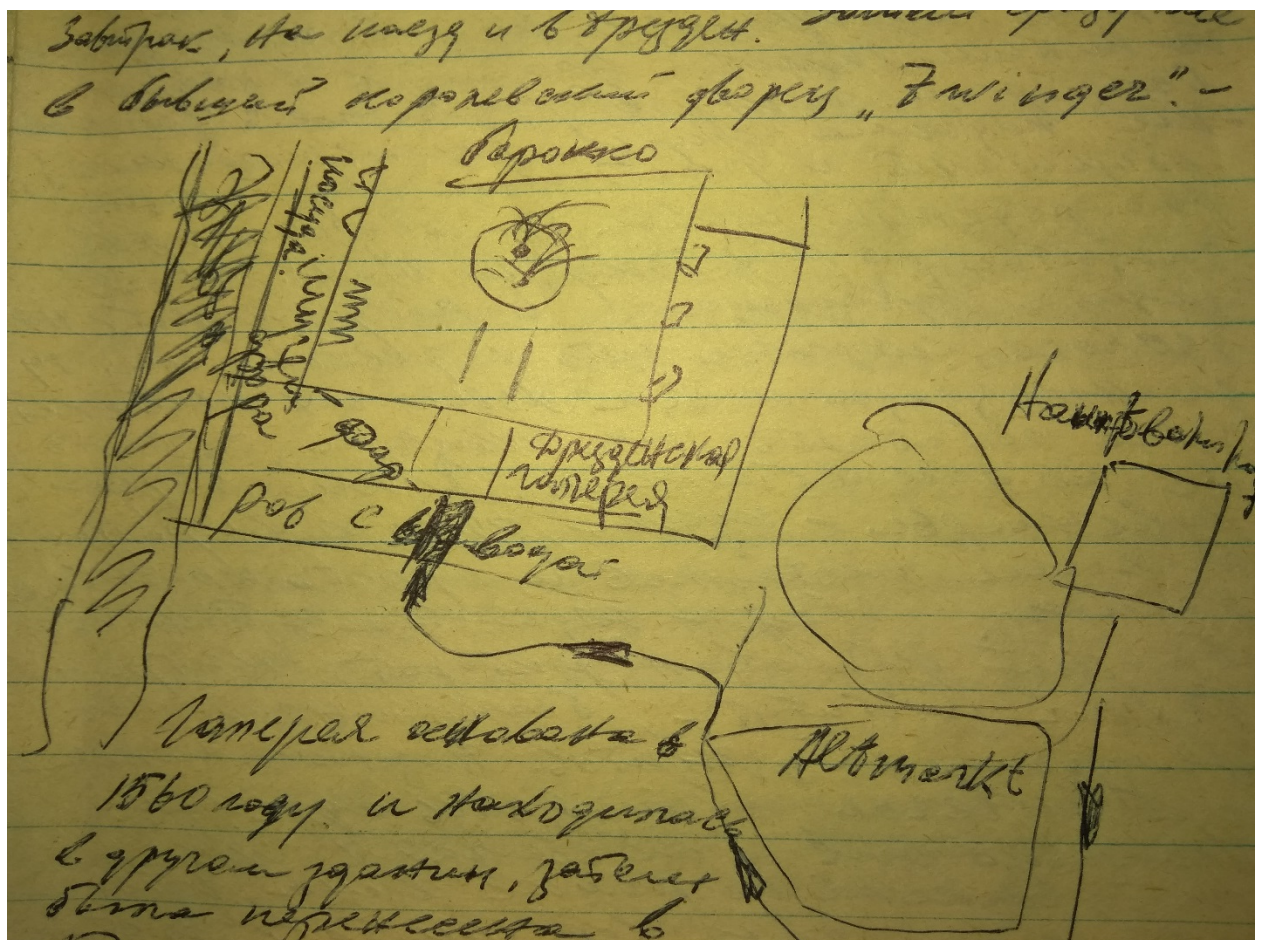 Завтрак, на поезд и в Дрезден. Затем
в бывший королевский дворец „Zwinger“. –
барокко
посуда
Дрезденская
галерея
ров с водой
Altmarkt
Галерея основана в
1560 году и находилась
в другом здании, затем
была перенесена в